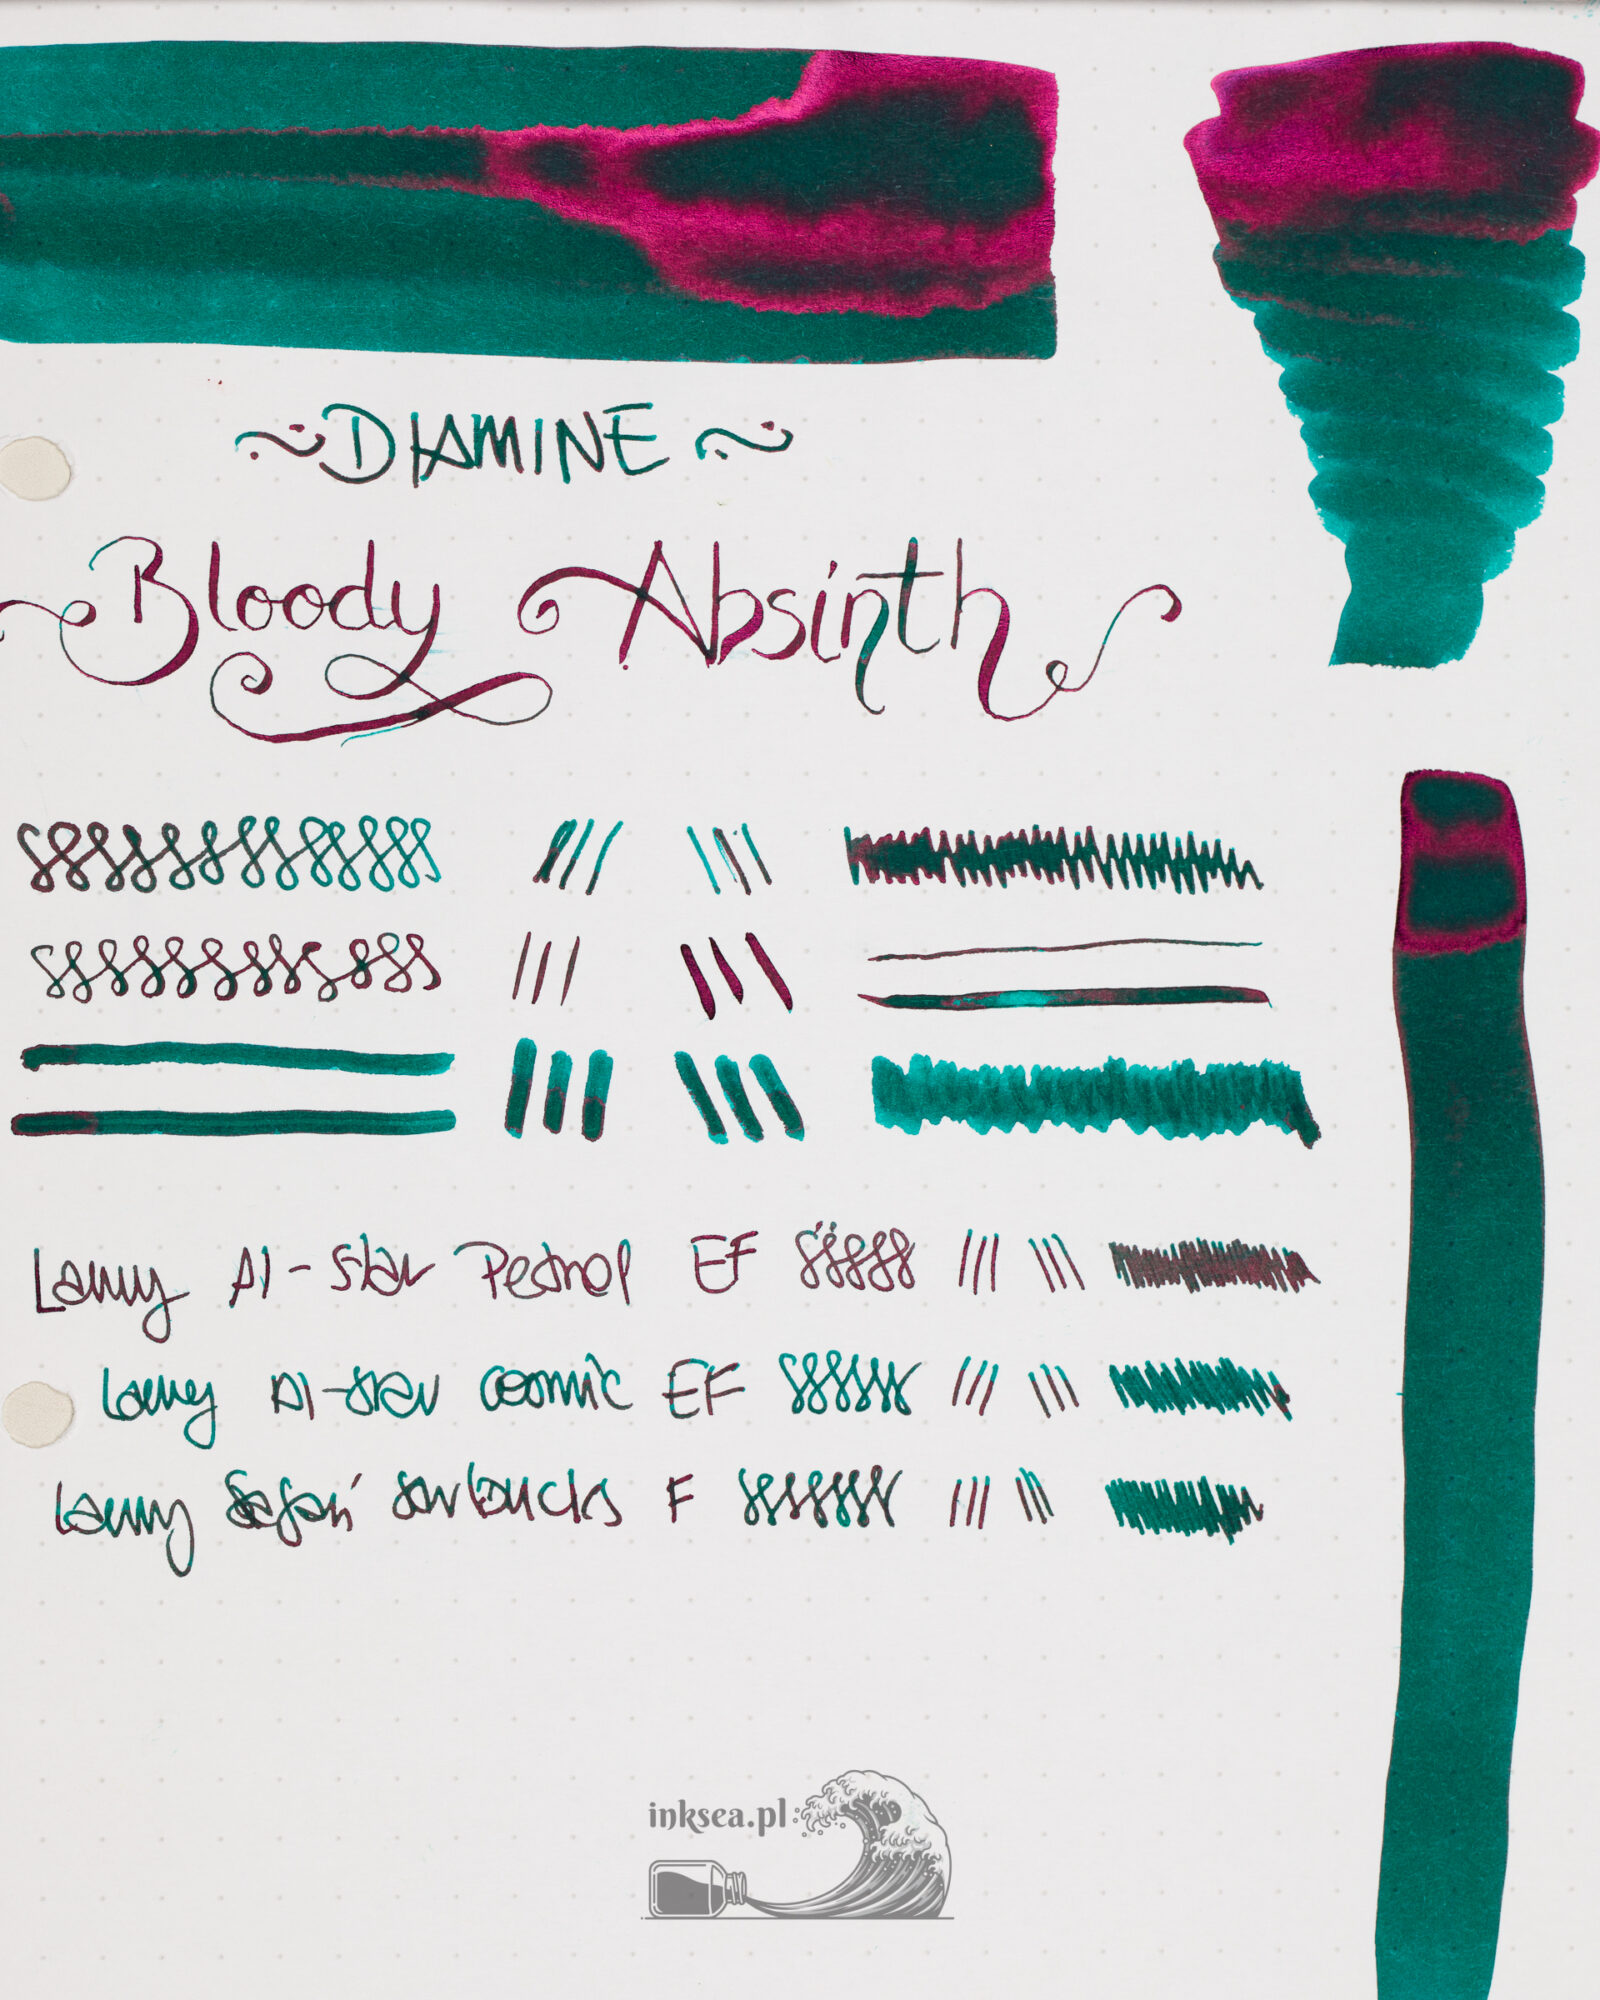 ~ DIAMINE ~
Bloody Absinth
Lamy Al-star Petrol EF
Lamy Al-star cosmic EF
Lamy Safari starbucks F
inksea.pl